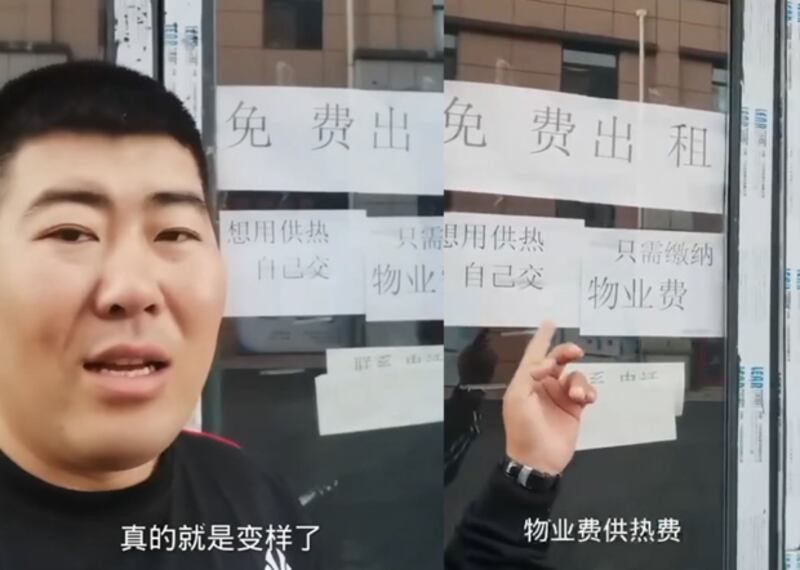 免费出
想用供热
自己交
只需
物业
真的就是变样了
免费出租
想用供热
自己交
只需缴纳
物业费
物业费供热费
LEAR
LEAR
LEAR